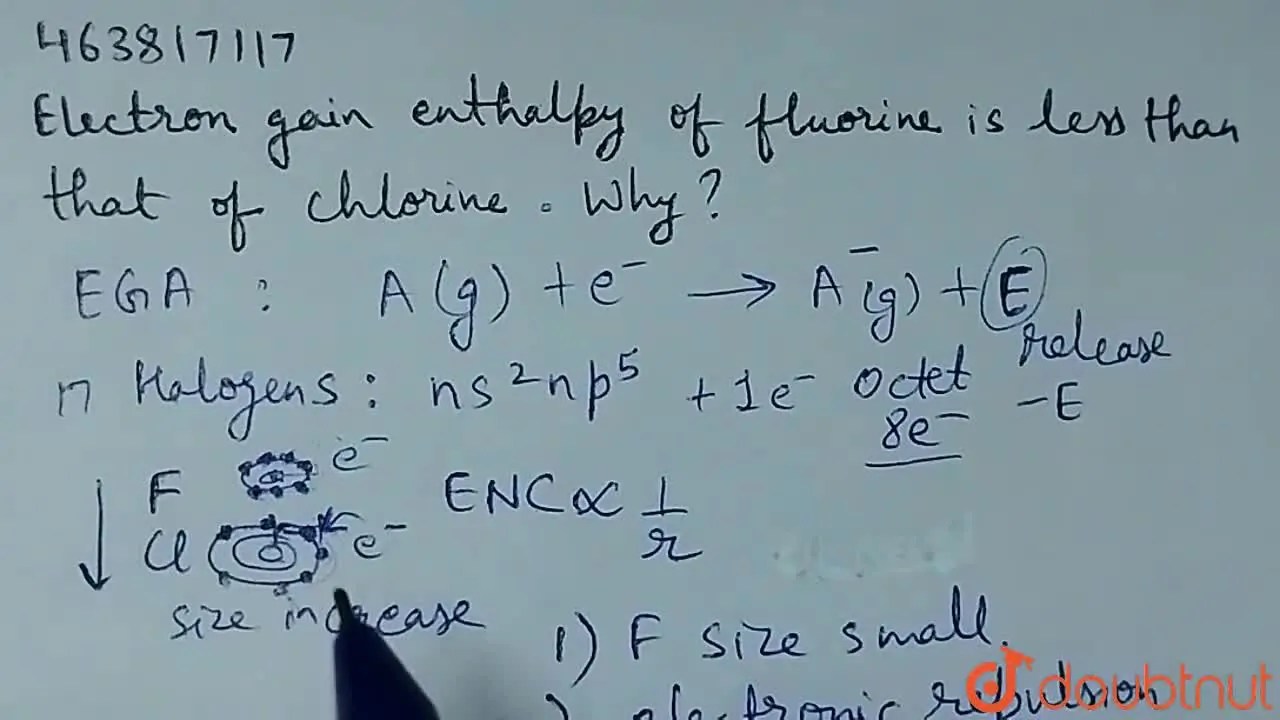 463817117
Electron gain enthalpy of fluorine is less than
that of chlorine. Why?
EGA : A(g) + e⁻ → A⁻(g) + E
release
n Halogens : ns²np⁵ + 1e⁻ octet -E
8e⁻
F e⁻ ENC ∝ 1/r
Cl e⁻
size increase
1) F size small.
electronic repulsion
doubtnut